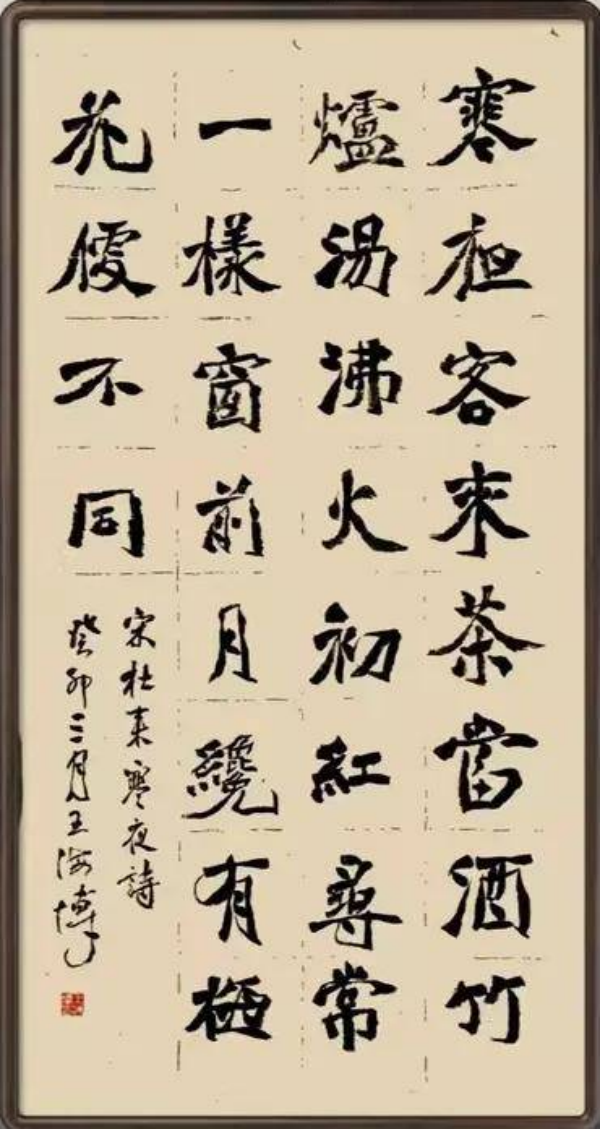 寒夜客來茶當酒竹
爐湯沸火初紅尋常
一樣窗前月纔有梅
花便不同
宋杜耒寒夜詩
癸卯三月王海博